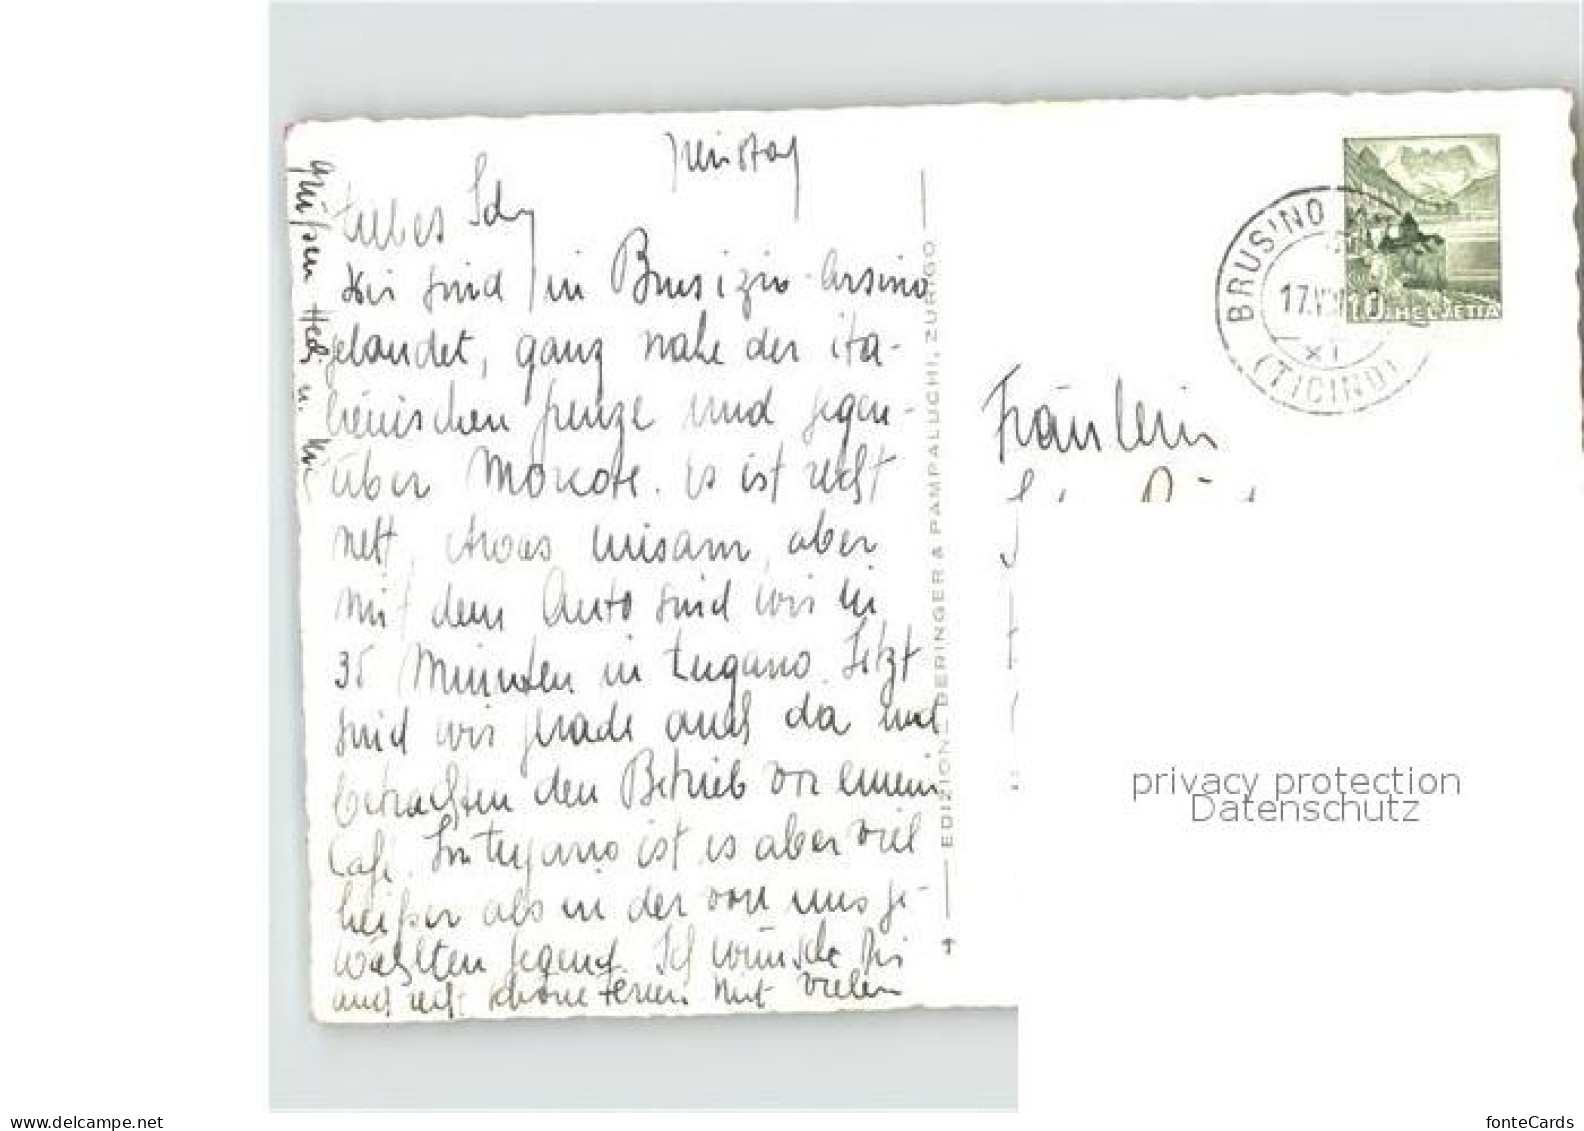 Dienstag
Liebes Idy
Wir sind in Brusizio-Arsino
gelandet, ganz nahe der ita-
lienischen Grenze und gegen-
über Morcote. Es ist recht
nett, etwas einsam, aber
mit dem Auto sind wir in
35 Minuten in Lugano. Jetzt
sind wir gerade auch da und
betrachten den Betrieb vor einem
Café. In Lugano ist es aber viel
heißer als in der von uns ge-
wählten Gegend. Ich wünsche Dir
auch recht schöne Ferien. Mit vielen
Grüßen Hedi u.
EDIZIONE DERINGER & PAMPALUCHI, ZURIGO
BRUSINO
17.
XI
(TICINO)
10 HELVETIA
Fräulein
privacy protection
Datenschutz
www.delcampe.net
fonteCards